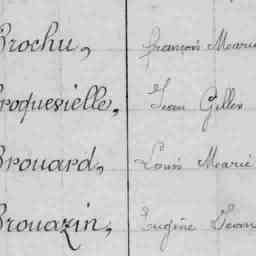 Brochu, François Marie
Broquevielle, Jean Gilles
Brouard, Louis Marie
Brouazin, Eugène Jean